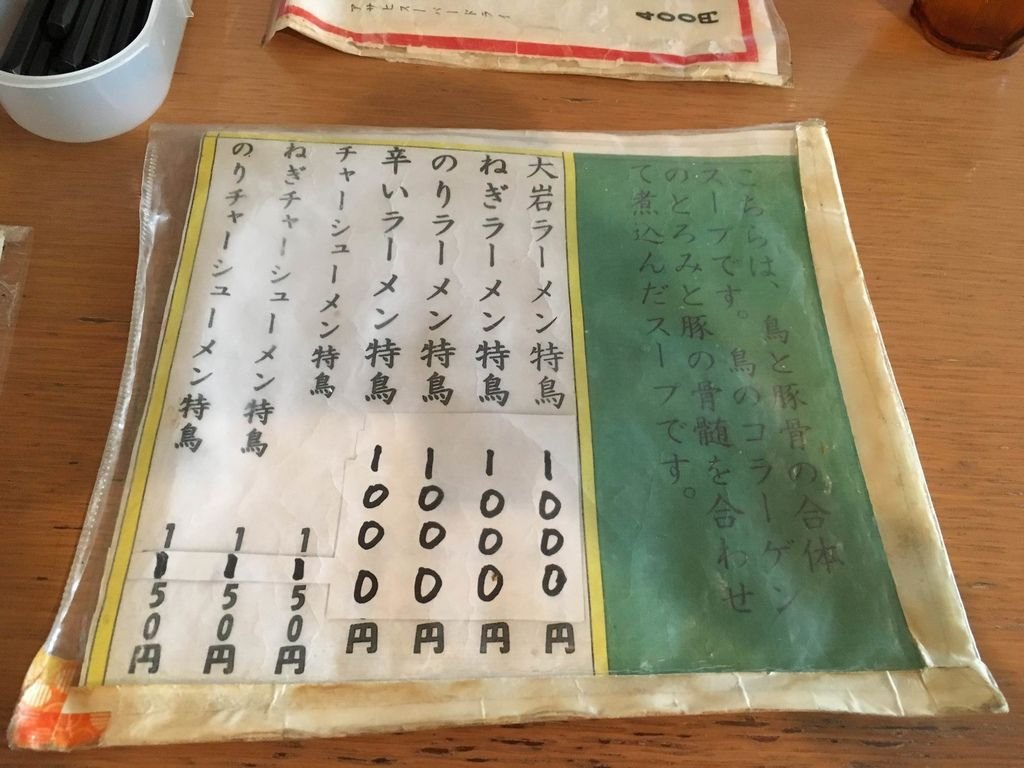 アサヒスーパードライ 400円
こちらは、鳥と豚骨の合体
スープです。鳥のコラーゲン
のとろみと豚の骨髄を合わせ
て煮込んだスープです。
大岩ラーメン特鳥 1000円
ねぎラーメン特鳥 1000円
のりラーメン特鳥 1000円
辛いラーメン特鳥 1000円
チャーシューメン特鳥 1150円
ねぎチャーシューメン特鳥 1150円
のりチャーシューメン特鳥 1150円